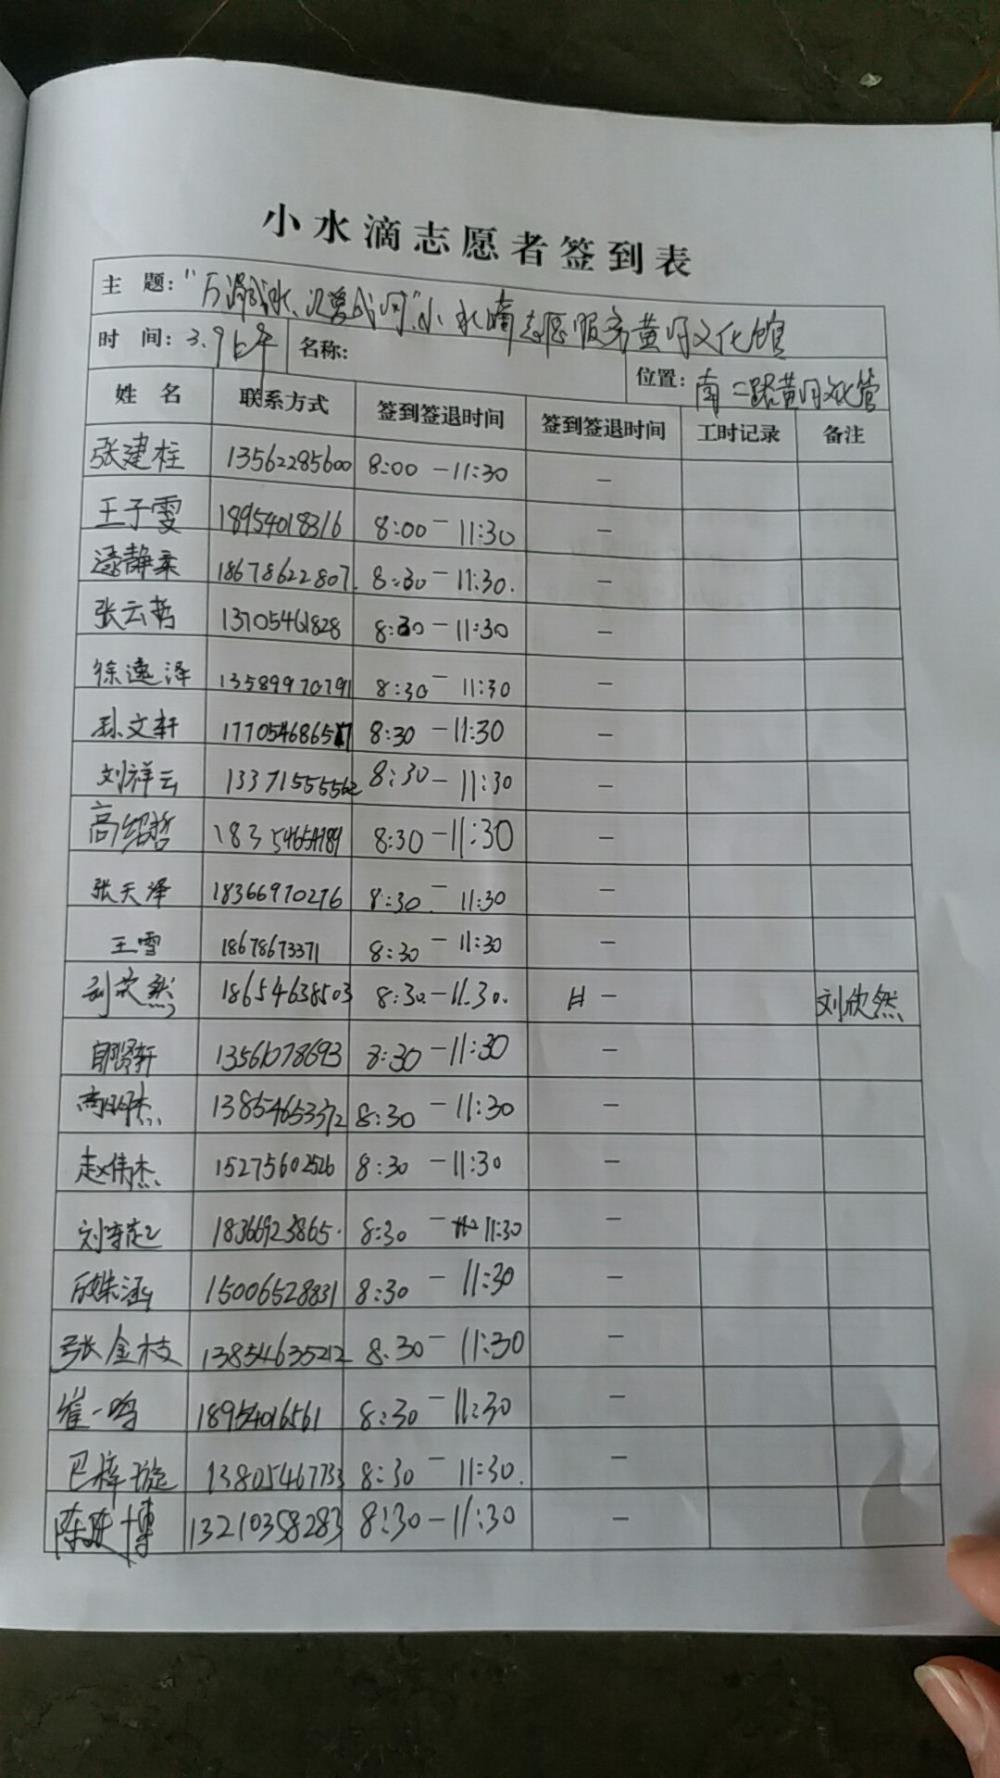 小水滴志愿者签到表
主 题: "万滴成水、汇聚成河"小水滴志愿服务黄河文化馆
时 间: 3.9上午 名称: 位置: 南二路黄河文化馆
姓 名 联系方式 签到签退时间 签到签退时间 工时记录 备注
张建柱 13562285600 8:00 - 11:30 -
王子雯 18954018316 8:00 - 11:30 -
逯静柔 18678622807. 8:30 - 11:30. -
张云哲 13705461828 8:30 - 11:30 -
徐逸泽 13589970791 8:30 - 11:30 -
孙文轩 17705468657 8:30 - 11:30 -
刘祥云 13371555562 8:30 - 11:30 -
高绍哲 8:30 - 11:30 -
张天泽 18366970276 8:30 - 11:30 -
王雪 18678673371 8:30 - 11:30 -
刘欣然 18654638503 8:30 - 11.30. - 刘欣然
贤轩 13561078693 8:30 - 11:30 -
杰 13854653372 8:30 - 11:30 -
赵伟杰 15275602526 8:30 - 11:30 -
刘 18366923865. 8:30 - 11:30 -
涵 15006528831 8:30 - 11:30 -
张金枝 13854635212 8.30 - 11:30 -
崔一鸣 18954016561 8:30 - 11:30 -
巴梓璇 13805467733 8:30 - 11:30. -
陈跃博 13210358283 8:30 - 11:30 -